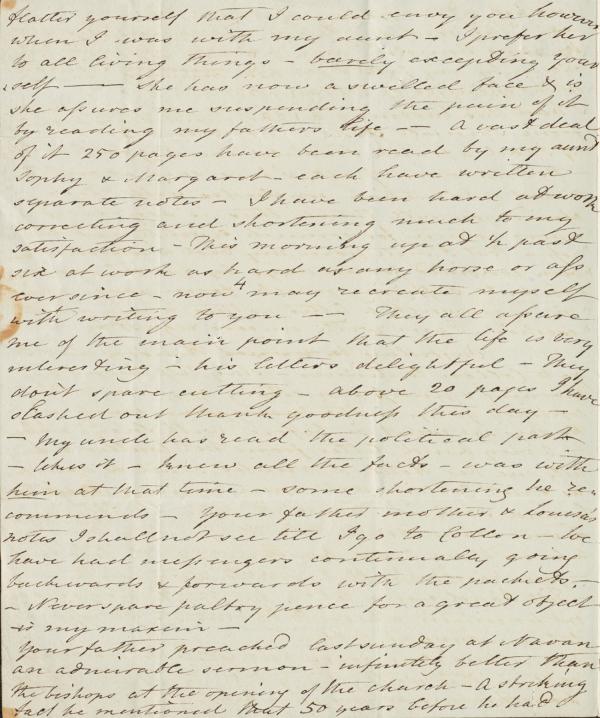 flatter yourself that I could envy you however
when I was with my aunt – I prefer her
to all living things – barely excepting your
self —— She has now a swelled face & is
she assures me suspending the pain of it
by reading my fathers life – – A vast deal
of it 250 pages have been read by my aunt
Sophy & Margaret – each have written
separate notes – I have been hard at work
correcting and shortening much to my
satisfaction – This morning up at ½ past
six at work as hard as any horse or ass
ever since – now 4 may recreate myself
with writing to you —— They all assure
me of the main point that the life is very
interesting – his letters delightful – They
don't spare cutting – above 20 pages I have
slashed out thank goodness this day –
– My uncle has read the political part
– likes it – knew all the facts – was with
him at that time – some shortening he re-
commends – Your father mother & Louisa's
notes I shall not see till I go to Collon – We
have had messengers continually going
backwards & forwards with the packets. –
– Never spare paltry pence for a great object
is my maxim –
Your father preached last sunday at Navan
an admirable sermon – infinitely better than
the bishops at the opening of the church – A striking
fact he mentioned that 50 years before he had